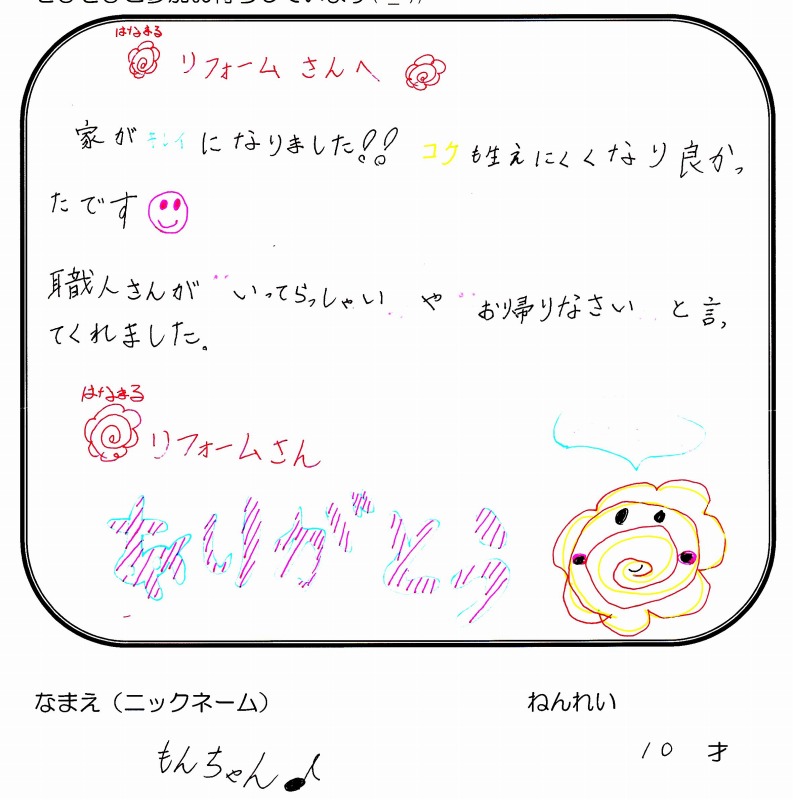 はなまる
リフォーム さんへ
家が キレイ になりました!! コケも生えにくくなり良かっ
たです
職人さんが "いってらっしゃい" や "お帰りなさい" と言っ
てくれました。
はなまる
リフォームさん
ありがとう
なまえ(ニックネーム)
ねんれい
もんちゃん♪
10 才